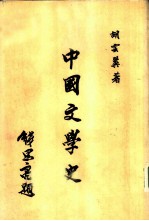 胡雲翼著
中國文學史